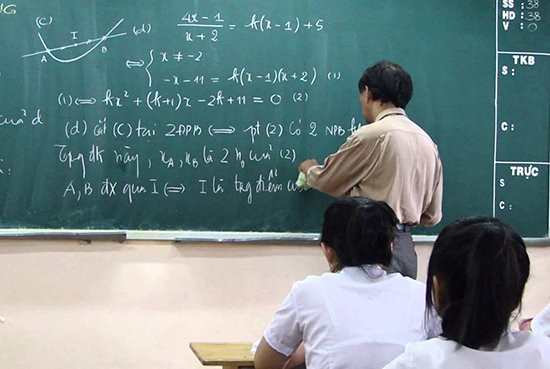 NG
(C)
(d)
I
A
B
4x - 1 / x + 2 = k(x - 1) + 5
⟺ { x ≠ -2
-x - 11 = k(x - 1)(x + 2) (1)
(1) ⟺ kx² + (k+1)x - 2k + 11 = 0 (2)
d
(d) cắt (C) tại 2 ĐPB ⟺ pt (2) có 2 NPB
này, x_A, x_B là 2 n₀ của (2)
A, B đx qua I ⟺ I là điểm
SS : 38
HD : 38
V : 0
TKB
S :
C :
TRỰC
S
C :